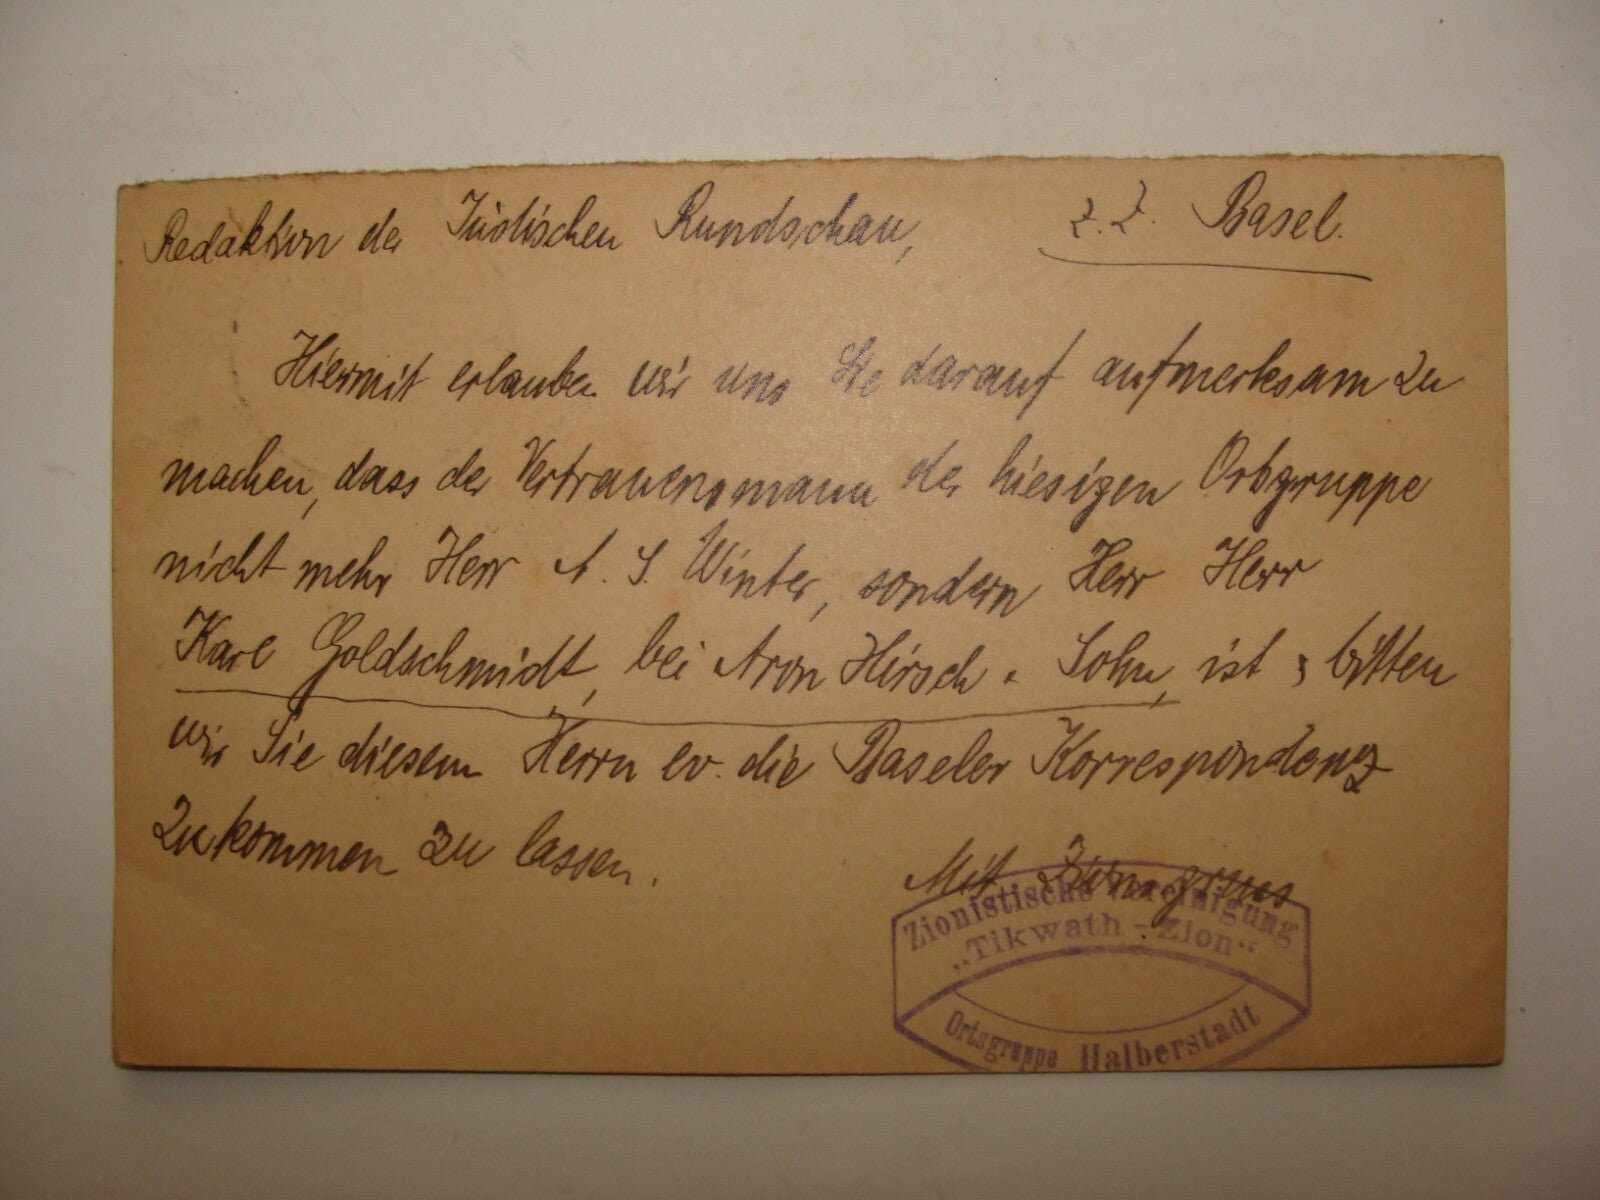 Redaktion der Jüdischen Rundschau, z. Z. Basel.
Hiermit erlauben wir uns Sie darauf aufmerksam zu
machen, dass der Vertrauensmann der hiesigen Ortsgruppe
nicht mehr Herr A. S. Winter, sondern Herr Herr
Karl Goldschmidt, bei Aron Hirsch & Sohn, ist & bitten
wir Sie diesem Herrn ev. die Baseler Korrespondenz
zukommen zu lassen.
Mit Zionsgruss
Zionistische Vereinigung
„Tikwath-Zion“
Ortsgruppe Halberstadt